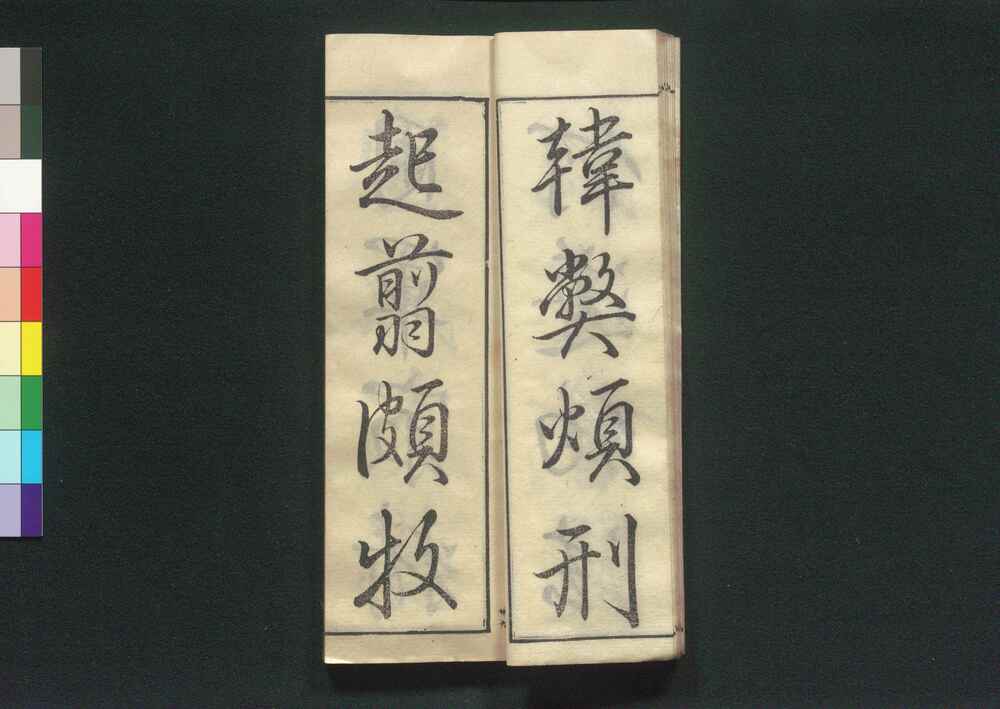 韓弊煩刑
起翦頗牧